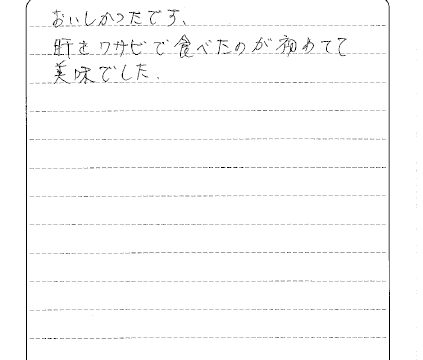 おいしかったです、
肝をワサビで食べたのが初めてて
美味でした.